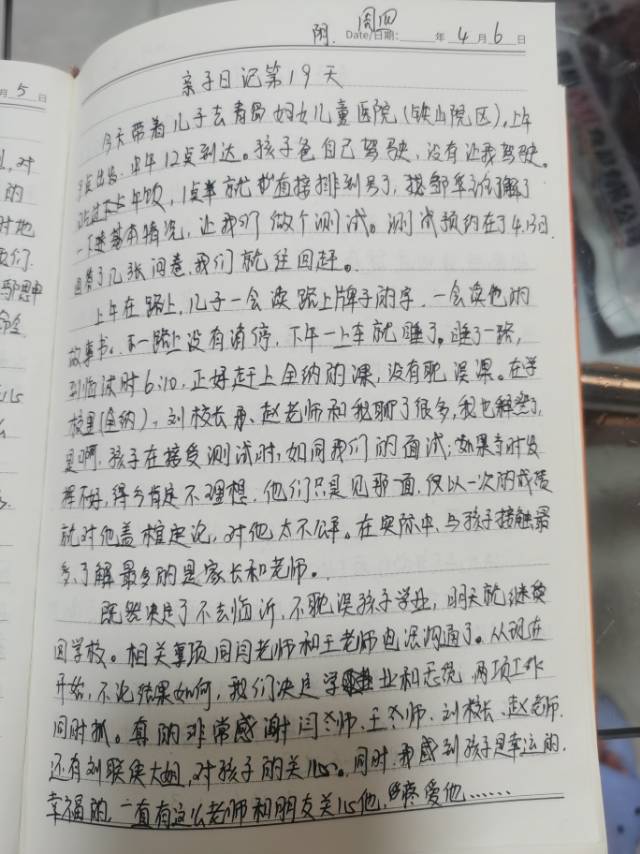 月 5 日
附. 周四
Date/日期: 年 4 月 6 日
亲子日记第19天
今天带着儿子去青岛妇女儿童医院(铁山院区),上午
点出发,中午12点到达。孩子爸自己驾驶,没有让我驾驶。
午饭,1点半就直接排到号了,邹军了解了
一下基本情况,让我们做个测试。测试预约在了4.13日.
带了几张问卷,我们就往回赶。
上午在路上,儿子一会读路上牌子的字,一会读他的
故事书。一路上没有消停,下午一上车就睡了。睡了一路,
到临沭时6:10,正好赶上全纳的课,没有耽误课。在学
校里(全纳),刘校长、赵老师和我聊了很多,我也释然了,
是啊,孩子在接受测试时,如同我们的面试;如果当时发
挥不好,得分肯定不理想。他们只是见那一面,仅以一次的成绩
就对他盖棺定论,对他太不公平。在实际中,与孩子接触最
多,了解最多的是家长和老师。
既然决定了不去临沂,不耽误孩子学业,明天就继续
回学校。相关事项同闫老师和王老师也沟通了。从现在
开始,不论结果如何,我们决定学业和 两项工作
同时抓。真的非常感谢闫老师、王老师、刘校长、赵老师,
还有刘联侠大姐,对孩子的关心。同时,我感到孩子是幸运的,
幸福的,一直有这么老师和朋友关心他,疼爱他……